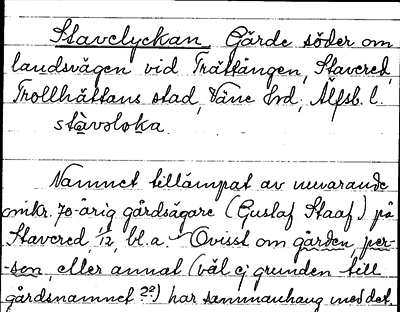 Stavelyckan. Gärde söder om
landsvägen vid Trättängen, Stavered,
Trollhättans stad, Väne hd, Älfsb. l.
stàvəlo̱ka.
Namnet tillämpat av nuvarande
omkr. 70-årig gårdsägare (Gustaf Staaf) på
Stavered 1/12, bl.a. Ovisst om gården, per-
-son, eller annat (väl ej grunden till
gårdsnamnet 2º) har sammanhang med det.